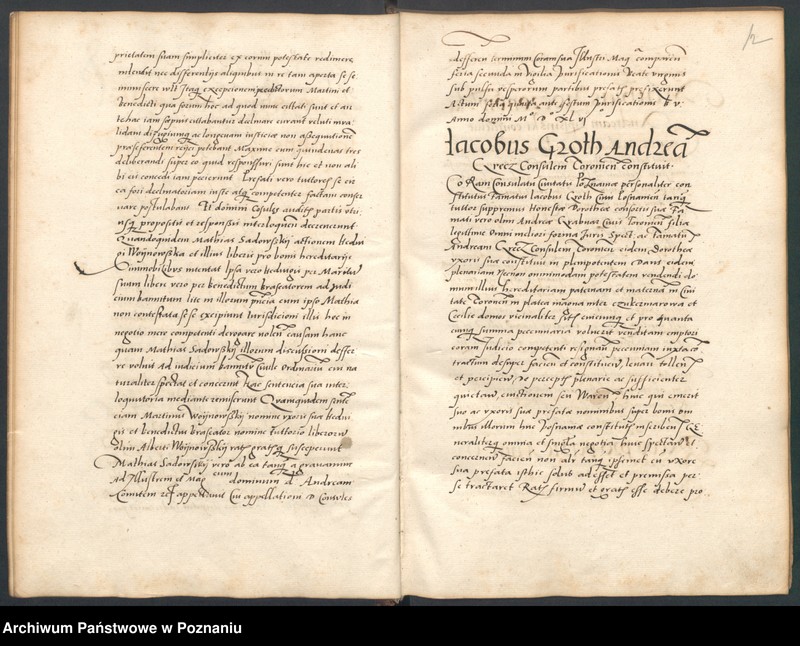 prietatem suam simpliciter ex eorum potestate redimere
intendit nec differentijs aliquibus in re tam aperta se se
immiscere velit Itaq exceptionem predictorum Martini et
Benedicti qua forum hoc ad quod nunc cittati sunt et an
te hac iam sepius cittabantur declinare curant veluti inva
lidam
preseferentem reijci petebant Maxime cum quindenas tres
deliberandi super eo quid responsuri sunt hic et non ali
bi eis concedi iam pecierint Prefati vero tuttores se eis
ea fori declinatoriam iuste atq competenter factam conser
uare postulabant Et domini Cosules auditis partis vtri
usq propositis et responsis interloquen decreuerunt
Quandoquidem Mathias Sadowskij actionem Hedui
gi Woijnowska et illius liberis pro bonis hereditarijs
Immobilibus intentat Ipsa vero Heduigis per Maritu
suum liberi vero per benedictum braseatorem ad Iudi
cium bannitum lite in illorum pricia cum ipso Mathia
non contestata se se excipiunt Iurisdictioni illi hoc in
negotio mere competenti derogare nolen causam hanc
quam Mathias Sadowskij illorum discussioni deffer
re voluit Ad iudicium bannitu Ciuile Ordinariu cui na
turaliter spectat et concernit Hac sentencia sua inter
loqutoria mediante remiserunt Quamquidem sente
ciam Martinus Woijnowskij nomine vxoris sua Hedui
gis et benedictus braseator nomine tuttorio liberoru
olim Alberti Woijnowskij rat gratq susceperunt
Mathias Sadowskij vero ab ea tanq a grauamine
Ad Illustrem et Mag cum dominum d Andream
Comitem appellauit Cui appellationi D Consules
12
defferen terminum Coram sua Illustri Mag comparen
feria secunda in vigilia Purificationis Beate virginis
sub pulsu vesperorum partibus prefatis prefixerunt
Actum feria quinta ante festum Purificationis b v
Anno domini M D XL VI
Iacobus Groth Andrea
Qreez Consulem Toronien constituit
Coram Consulatu Ciuitatis Poznanie personaliter con
stitutus famatus Iacobus Groth Ciuis Posnanien tanq
tuttor suppremus Honeste Dorothee consortis sue Fa
mati vero olim Andree Grabner Ciuis Toronien filia
legittime Omni meliori forma Iuris Spect ac famatu
Andream Qreez Consulem Toronien eidem Dorothee
vxoris sua constituit in plenipotentem Dans eidem
plenariam necnon omnimodam potestatem vendendi do
mum illius hereditariam paternam et maternam in Ciui
tate Toronien in platea magna inter Czukermanowa et
Cecilie domos vicinaliter sitam eiicienq et pro quanta
cunq summa pecuniaria voluerit venditam emptori
coram Iudicio competenti resignan pecuniam iuxta co
tractum desuper facien et constituere leuan tollen
et percipien De perceptis plenarie ac sufficienter
quietan euictionem seu Waren huic qui emerit
suo ac vxoris sua prefata nominibus super bonis om
nibus illorum huic Posnanie constitutis inscriben Et
generaliterq omnia et singula negotia huic spectare et
concernere facien non alr tanq ipsemet cu vxore
sua prefata isthic solus adesset et premissa per
se tractaret Rat firmu et grat esse debere pro
Archiwum Państwowe w Poznaniu